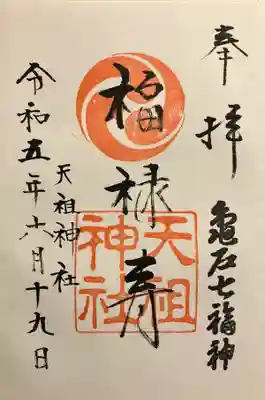 奉拝
龜戸七福神
福禄寿
天祖神社
天祖神社
令和五年六月十九日